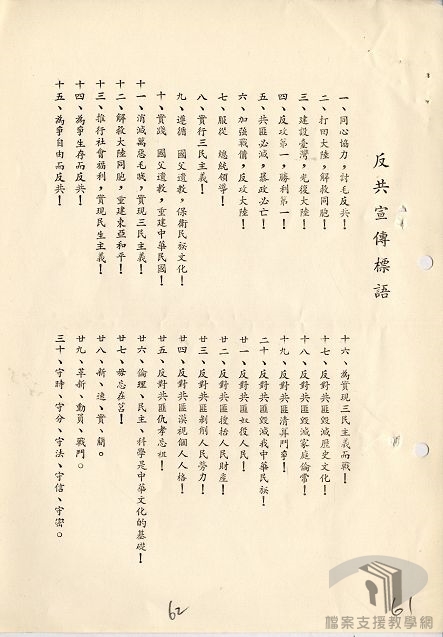 反共宣傳標語
一、同心協力，討毛反共！
二、打回大陸，解救同胞！
三、建設臺灣，光復大陸！
四、反攻第一，勝利第一！
五、共匪必滅，暴政必亡！
六、加強戰備，反攻大陸！
七、服從　總統領導！
八、實行三民主義！
九、遵循　國父遺教，保衛民族文化！
十、實踐　國父遺教，重建中華民國！
十一、消滅萬惡毛賊，實現三民主義！
十二、解救大陸同胞，重建東亞和平！
十三、推行社會福利，實現民生主義！
十四、為爭生存而反共！
十五、為爭自由而反共！
十六、為實現三民主義而戰！
十七、反對共匪毀滅歷史文化！
十八、反對共匪毀滅家庭倫常！
十九、反對共匪清算鬥爭！
二十、反對共匪毀滅我中華民族！
廿一、反對共匪奴役人民！
廿二、反對共匪搜括人民財產！
廿三、反對共匪剝削人民勞力！
廿四、反對共匪漠視個人人格！
廿五、反對共匪仇孝忘祖！
廿六、倫理、民主、科學是中華文化的基礎！
廿七、毋忘在莒！
廿八、新、速、實、簡。
廿九、革新、動員、戰鬥。
三十、守時、守分、守法、守信、守密。
62
61
檔案支援教學網